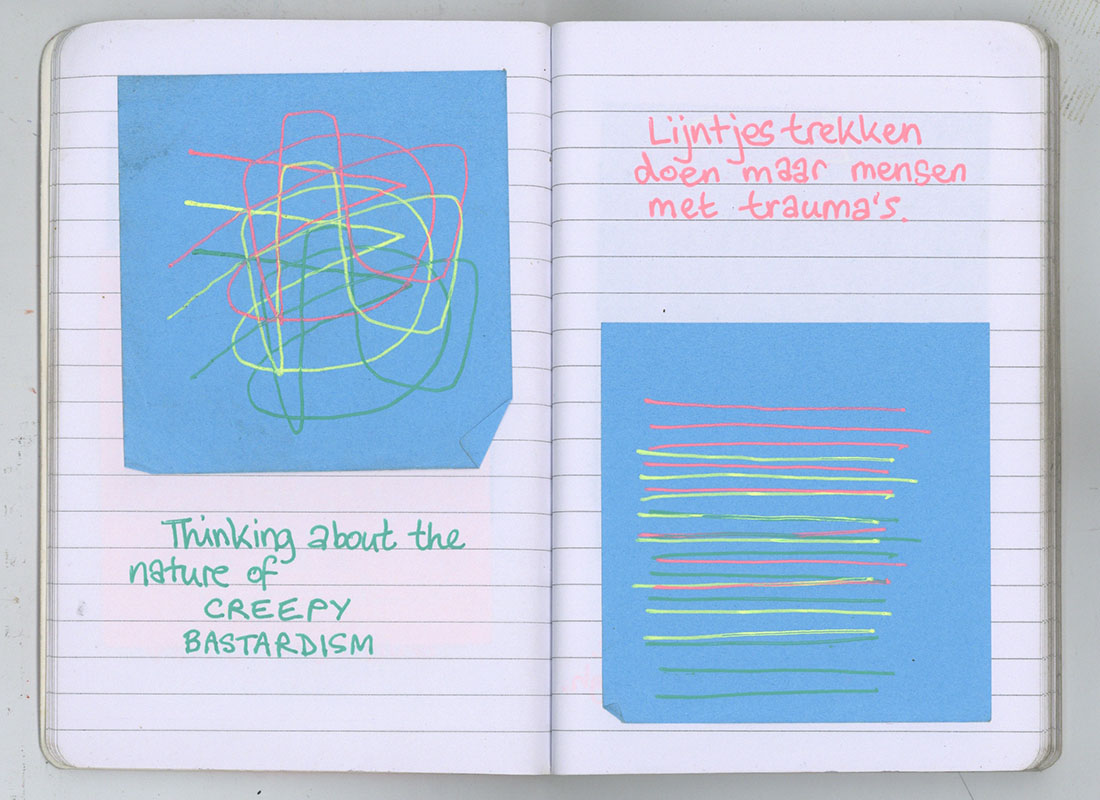 Thinking about the
nature of
CREEPY
BASTARDISM
Lijntjes trekken
doen maar mensen
met trauma's.